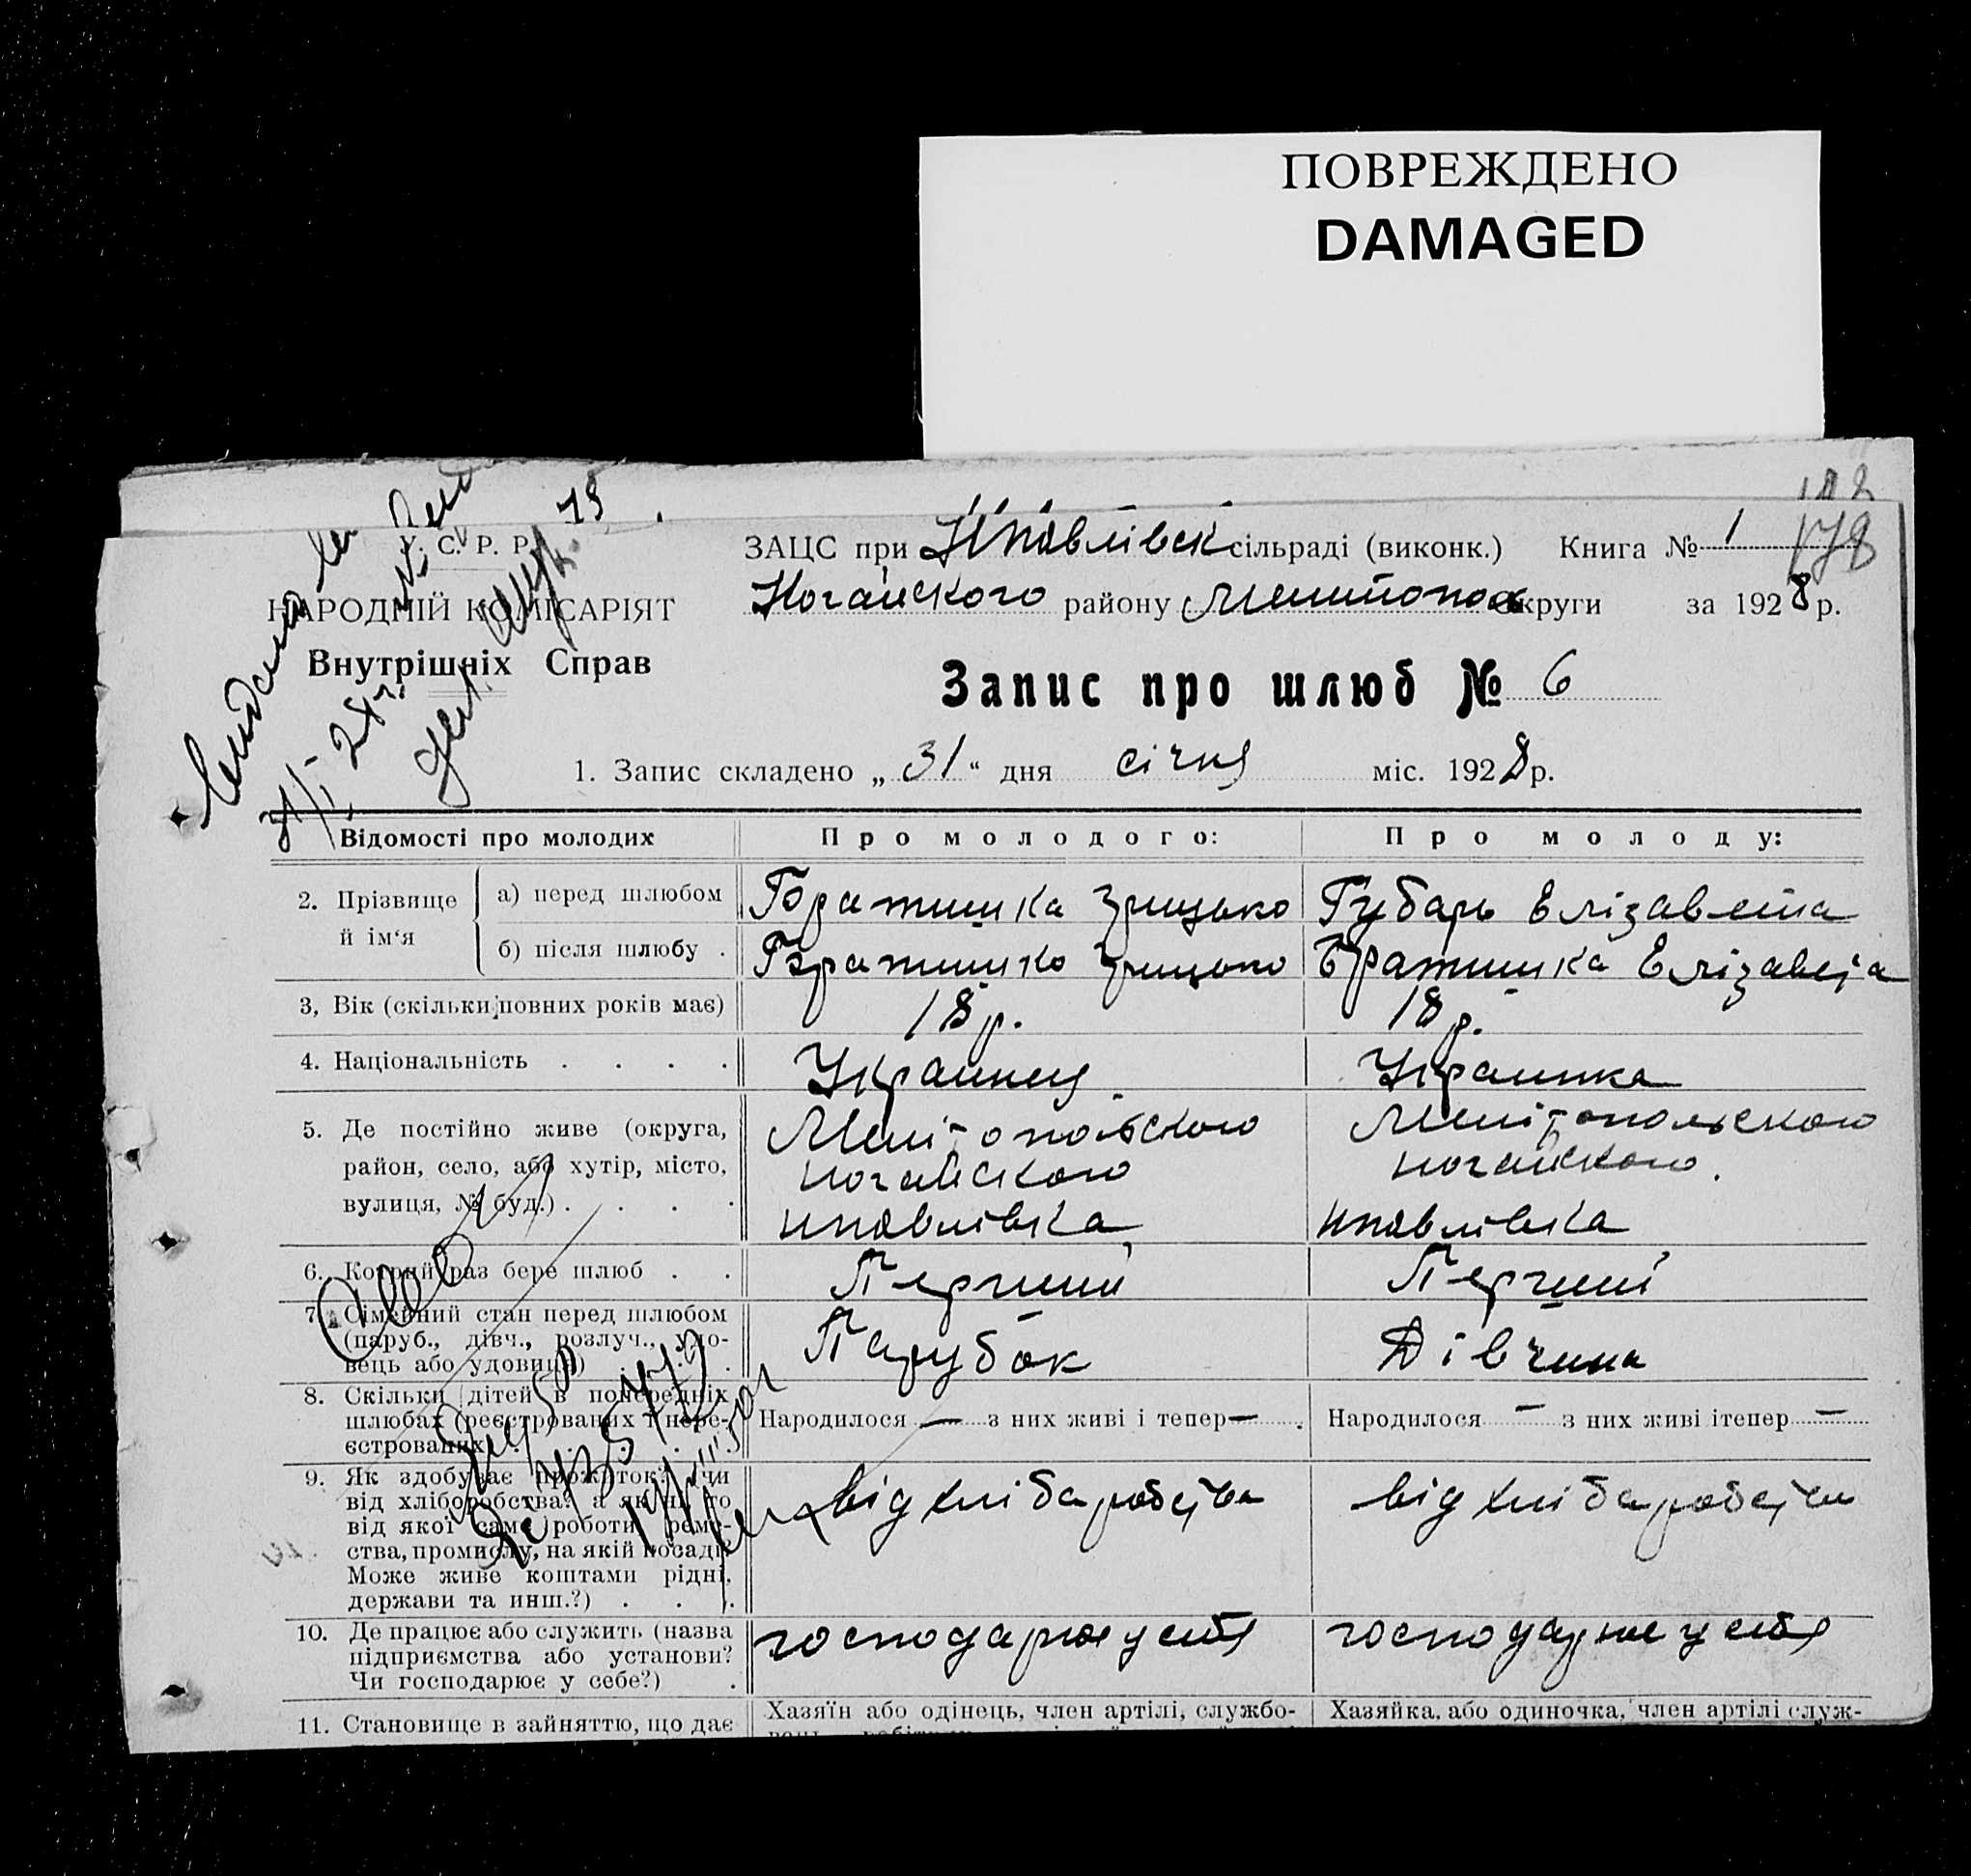 ПОВРЕЖДЕНО
DAMAGED
178
У. С. Р. Р.
НАРОДНІЙ КОМІСАРІЯТ
Внутрішніх Справ
ЗАЦС при Нпавлівск сільраді (виконк.) Книга № 1
Ногайского району Мелитопол округи за 1928 р.
Запис про шлюб № 6
1. Запис складено „31“ дня січня міс. 1928 р.
Відомості про молодих Про молодого: Про молоду:
2. Прізвище й ім‘я
а) перед шлюбом Братишка Грицько Губарь Елізавета
б) після шлюбу . Братишко Грицько Братишка Елізавета
3, Вік (скільки повних років має) 18 р. 18 р.
4. Національність . . . . Украинец Украинка
5. Де постійно живе (округа, Мелітопольского Мелітопольского
район, село, або хутір, місто, ногайского ногайского.
вулиця, № буд.) . . . . нпавлівка нпавлівка
6. Котрий раз бере шлюб . . Перший Перший
7. Сімейний стан перед шлюбом
(паруб., дівч., розлуч., удо- Парубок Дівчина
вець або удовиця) .
8. Скільки дітей в попередніх
шлюбах (реєстрованих і нере- Народилося — з них живі і тепер — . Народилося — з них живі ітепер —
єстрованих) . . . .
9. Як здобуває прожиток? (чи від хлібаробства від хлібаробства
від хліборобства? а як ні, то
від якої саме роботи, реме-
ства, промислу, на якій посаді?
Може живе коштами рідні,
держави та инш.?) . . .
10. Де працює або служить (назва господарює у себе господарює у себе
підприємства або установи?
Чи господарює у себе?) .
11. Становище в зайняттю, що дає Хазяїн або одінець, член артілі, службо- Хазяйка, або одиночка, член артілі служ-